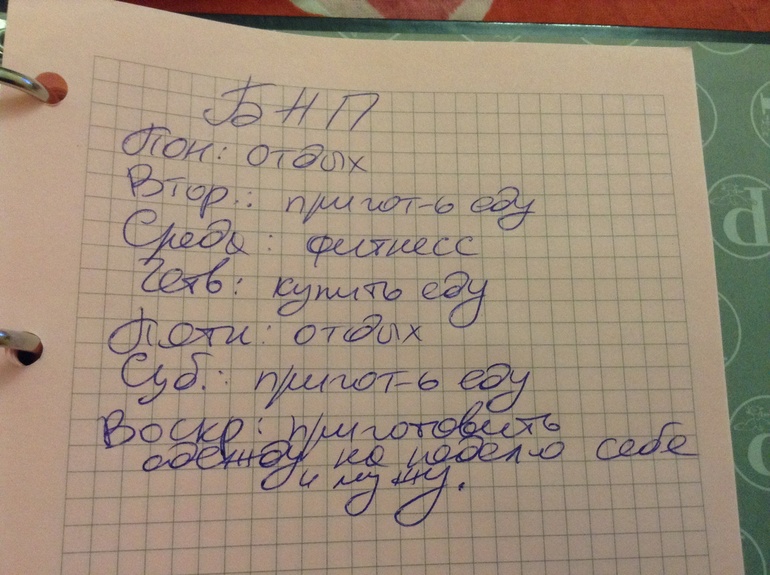 БНП
Пон: отдых
Втор.: пригот-ь еду
Среда: фитнесс
Четв: купить еду
Пятн: отдых
Суб.: пригот-ь еду
Воскр: приготовить
одежду на неделю себе
и мужу.